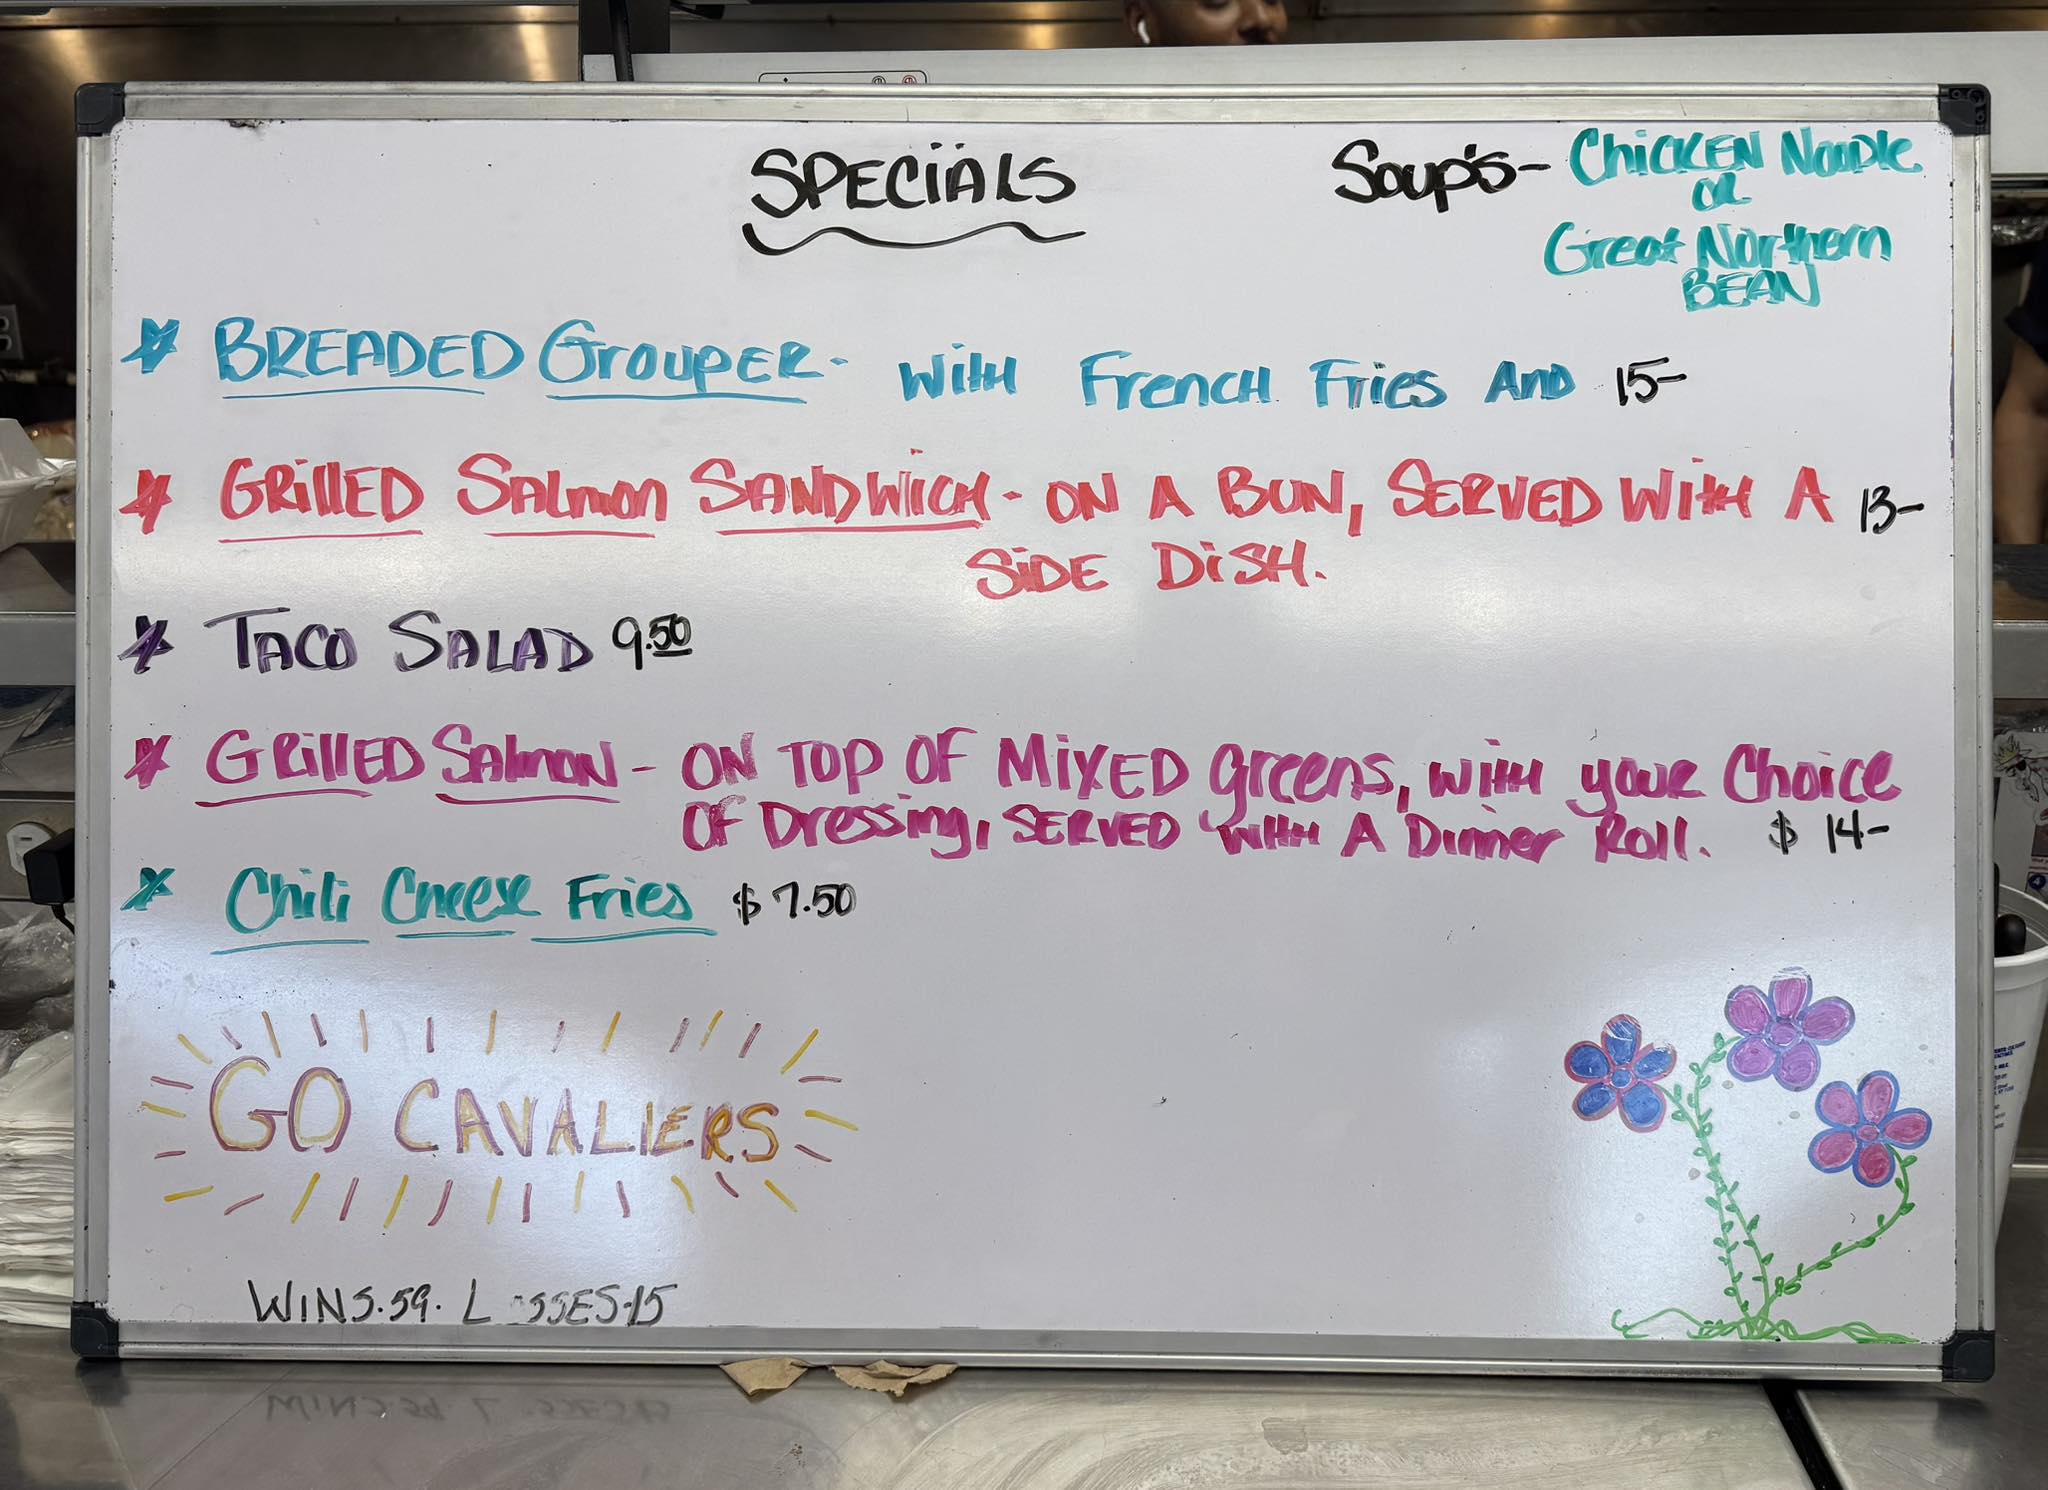 SPECIALS
Soup's- Chicken Noodle
or
Great Northern
BEAN
BREADED Grouper- with French Fries And 15-
GRILLED Salmon SANDWICH- ON A BUN, SERVED WITH A 13-
SIDE DISH.
TACO SALAD 9.50
GRILLED Salmon - ON TOP OF MIXED greens, with your Choice
OF Dressing, SERVED WITH A Dinner Roll. $ 14-
Chili Cheese Fries $ 7.50
GO CAVALIERS
WINS.59. L SSES-15